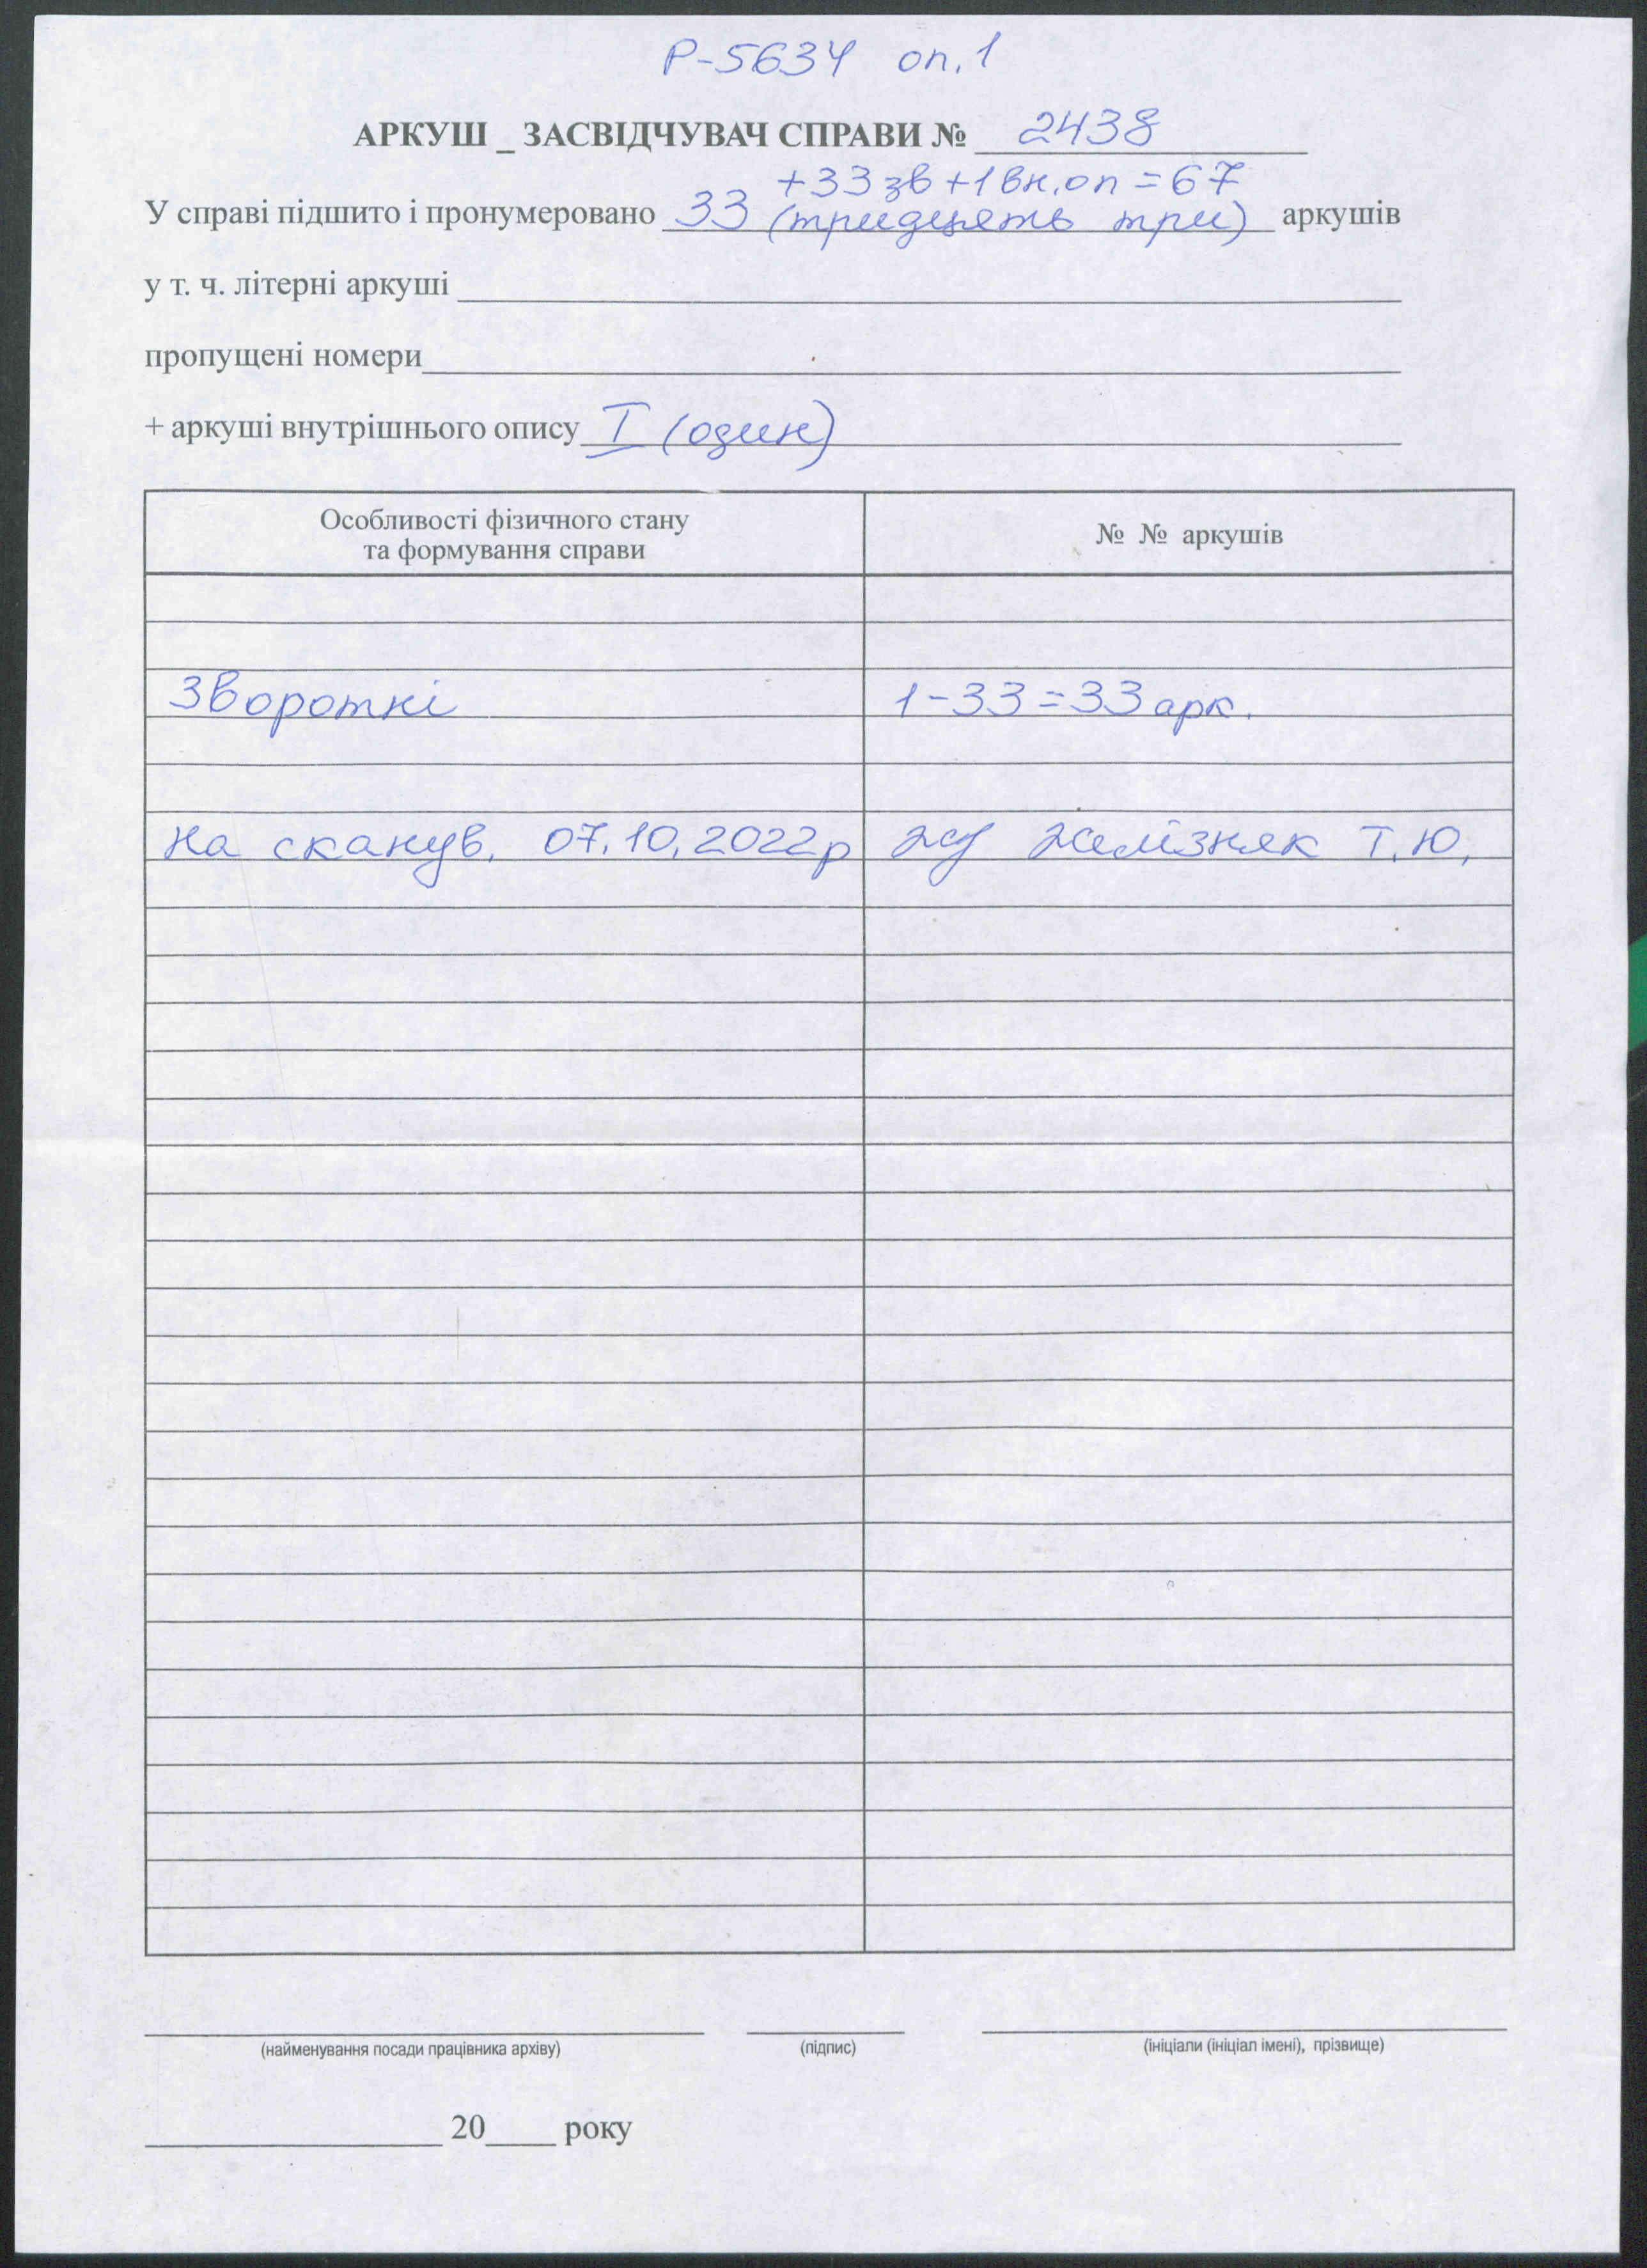 Р-5634 оп.1
АРКУШ _ ЗАСВІДЧУВАЧ СПРАВИ № 2438
+33 зв+1 вн.оп=67
У справі підшито і пронумеровано 33 (тридцять три) аркушів
у т. ч. літерні аркуші
пропущені номери
+ аркуші внутрішнього опису I (один)
Особливості фізичного стану
та формування справи
№ № аркушів
Зворотні 1-33=33 арк.
на сканув. 07.10.2022р Желізняк Т.Ю.
(найменування посади працівника архіву) (підпис) (ініціали (ініціал імені), прізвище)
20 року